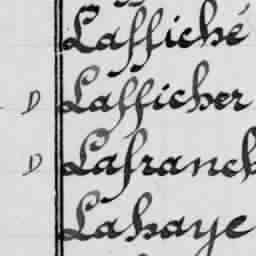 Laffiché
D Lafficher
D Lafranch
Lahaye